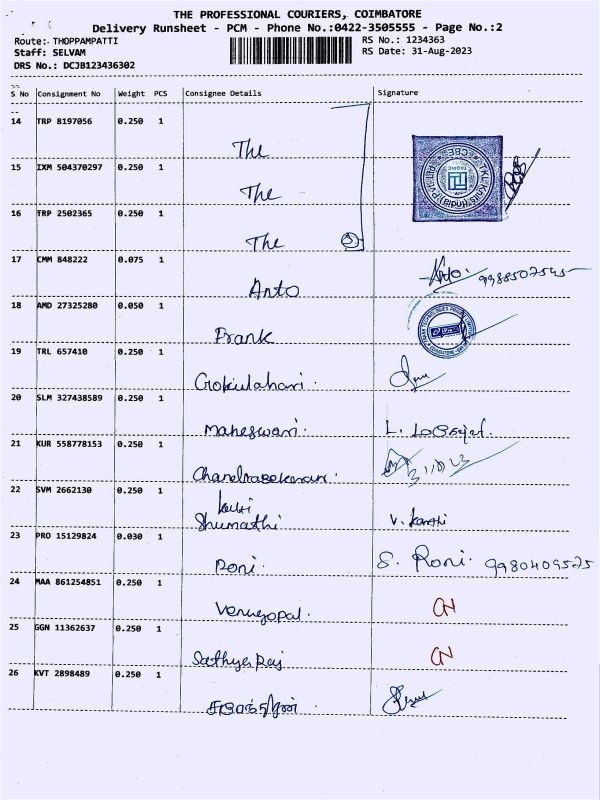 THE PROFESSIONAL COURIERS, COIMBATORE
Delivery Runsheet - PCM - Phone No.:0422-3505555 - Page No.:2
Route:- THOPPAMPATTI
RS No.: 1234363
Staff: SELVAM
RS Date: 31-Aug-2023
DRS No.: DCJB123436302
S No Consignment No Weight PCS Consignee Details Signature
14 TRP 8197056 0.250 1 The
15 IXM 504370297 0.250 1 The
16 TRP 2502365 0.250 1 The
17 CMM 848222 0.075 1 Anto Anto. 9988507545
18 AMD 27325280 0.050 1 Frank
19 TRL 657410 0.250 1 Gokulahari.
20 SLM 327438589 0.250 1 Maheswari. L.
21 KUR 558778153 0.250 1 Chandrasekaran.
22 SVM 2662130 0.250 1 Shumathi V. Kanthi
23 PRO 15129824 0.030 1 Roni. S. Roni. 9980409525
24 MAA 861254851 0.250 1 Venugopal. CN
25 GGN 11362637 0.250 1 Sathya Raj CN
26 KVT 2898489 0.250 1